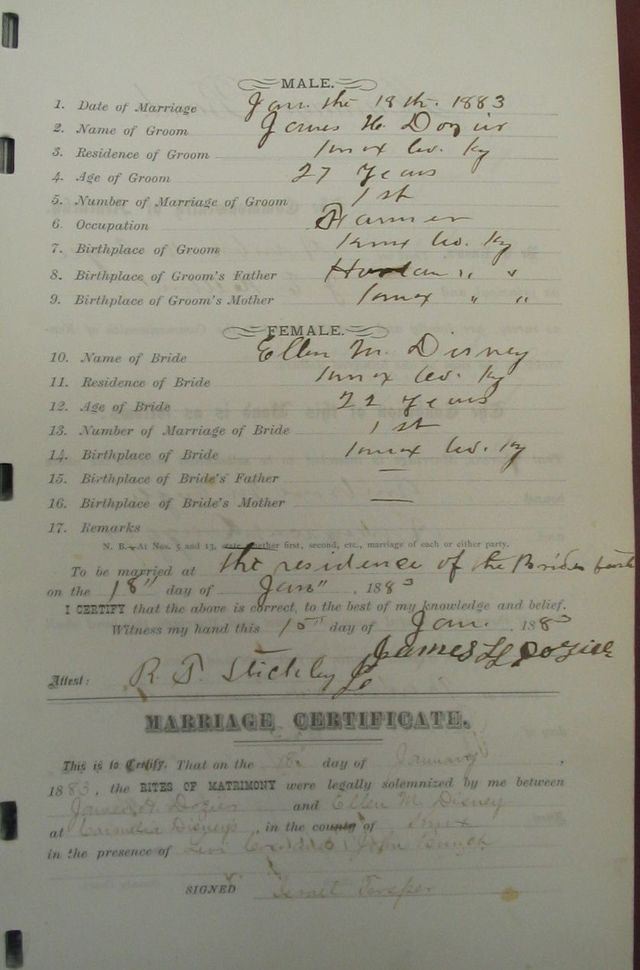 MALE.
1. Date of Marriage Jan. the 18th. 1883
2. Name of Groom James H. Dozier
3. Residence of Groom Knox Co. Ky
4. Age of Groom 27 years
5. Number of Marriage of Groom 1st
6. Occupation Farmer
7. Birthplace of Groom Knox Co. Ky
8. Birthplace of Groom's Father Harlan " "
9. Birthplace of Groom's Mother Knox " "
FEMALE.
10. Name of Bride Ellen M. Disney
11. Residence of Bride Knox Co. Ky
12. Age of Bride 22 years
13. Number of Marriage of Bride 1st
14. Birthplace of Bride Knox Co. Ky
15. Birthplace of Bride's Father —
16. Birthplace of Bride's Mother —
17. Remarks
N. B.—At Nos. 5 and 13, state whether first, second, etc., marriage of each or either party.
To be married at the residence of the Brides
on the 18" day of Jan" 1883
I CERTIFY that the above is correct, to the best of my knowledge and belief.
Witness my hand this 15" day of Jan. 1883
James H Dozier
Attest: R. T. Stickley
MARRIAGE CERTIFICATE.
This is to Certify, That on the 18 day of January,
1883, the RITES OF MATRIMONY were legally solemnized by me between
James H. Dozier and Ellen M. Disney
at Disney's, in the county of Knox
in the presence of Levi John
SIGNED